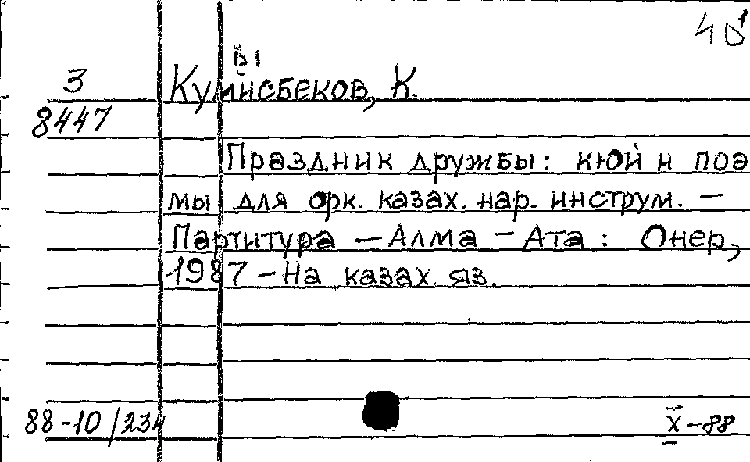 40
З Кумисбеков, К.
ы
8447
Праздник дружбы: кюй и поэ
мы для орк. казах. нар. инструм. –
Партитура – Алма – Ата : Онер,
1987 – На казах яз.
88-10/334 X-88